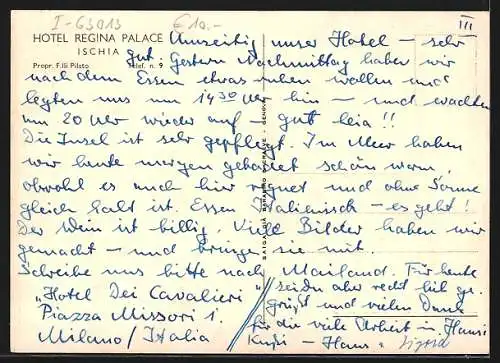 I-63013 €10.-
III
HOTEL REGINA PALACE
ISCHIA
Propr. F.lli Pilato Telef. n. 9
Umseitig unser Hotel – sehr
gut. Gestern Nachmittag haben wir
nach dem Essen etwas ruhen wollen und
legten uns um 14 30 Uhr hin – und wachten
um 20 Uhr wieder auf – gut
Die Insel ist sehr gepflegt. Im Meer haben
wir heute morgen gebadet schön warm,
obwohl es auch hier regnet und ohne Sonne
gleich kalt ist. Essen Italienisch – es geht!
Der Wein ist billig. Viele Bilder haben wir
gemacht – und bringe sie mit.
Schreibe uns bitte nach Mailand. Für heute
"Hotel Dei Cavalieri"
Piazza Missori 1.
Milano/Italia
seiden aber recht hzl ge-
grüßt und vielen Dank
für die viele Arbeit in
– Hans u.